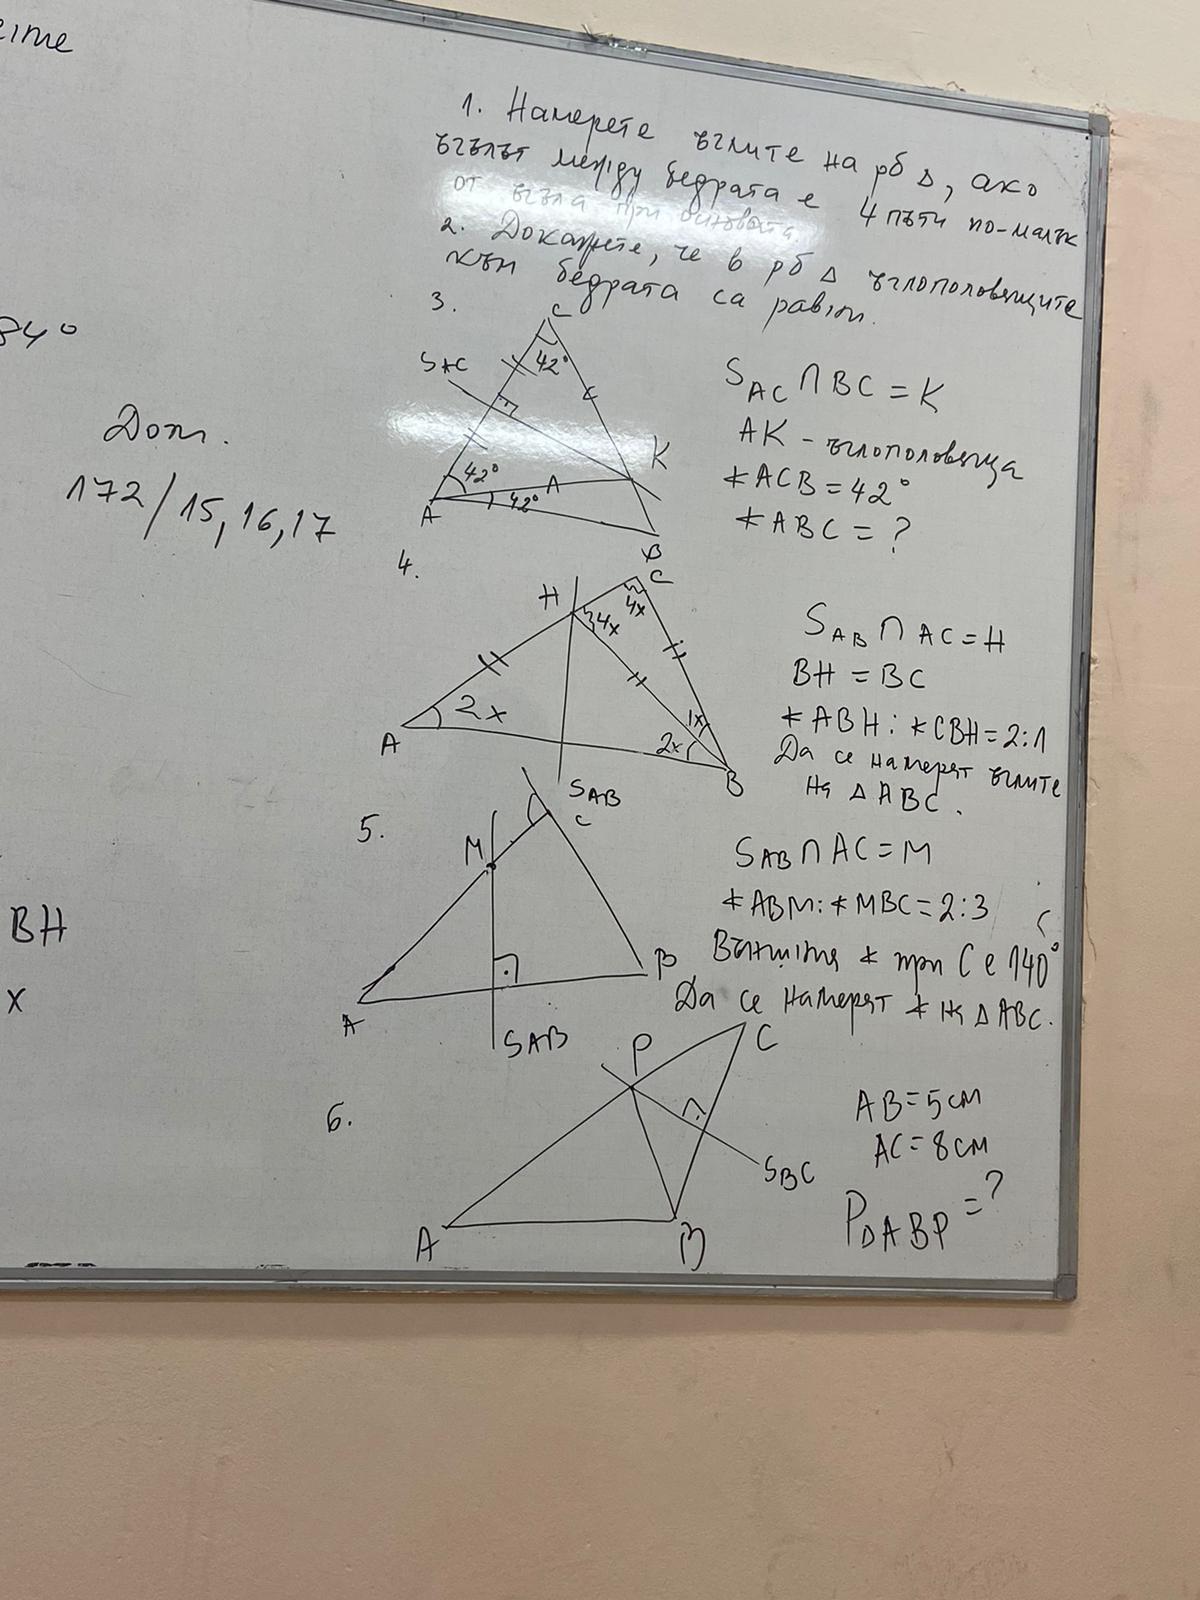 1. Намерете ъглите на рб Δ, ако
ъгълът между бедрата е 4 пъти по-малък
от ъгъла при основата.
2. Докажете, че в рб Δ ъглополовящите
към бедрата са равни.
84°
Дом.
172/15,16,17
BH
x
3.
C
42°
SAC
K
42°
A
42°
A
B
SAC ∩ BC = K
AK - ъглополовяща
∢ACB = 42°
∢ABC = ?
4.
H
C
4x
4x
2x
1x
2x
A
B
SAB
SAB ∩ AC = H
BH = BC
∢ABH : ∢CBH = 2:1
Да се намерят ъглите
на Δ ABC.
5.
C
M
B
A
SAB
SAB ∩ AC = M
∢ABM : ∢MBC = 2:3
Външния ∢ при C е 140°
Да се намерят ∢ на Δ ABC.
6.
P
C
SBC
A
B
AB = 5 см
AC = 8 см
PΔABP = ?